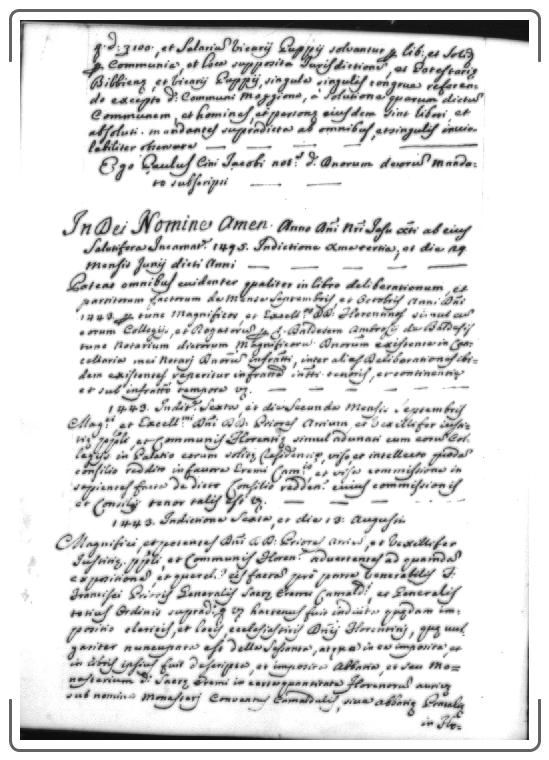 q. d: 3100, et Salaria Vicarij Puppij solvantur
Communia, et loca supposita Jurisdictioni, et Potestariæ
Bibbienæ, et Vicarij Puppij, singula singulis congrue referen-
do excepto d: Communi Moggiona, a solutione quorum dictum
Communem, et homines, et personas eiusdem sint liberi, et
absoluti. mandantes supradicta ab omnibus, et singulis invio-
labiliter observare
Ego Paulus Cini Jacobi not: d. Dnorum de
to subscripsi
In Dei Nomine Amen. Anno Dni Nri Jesu Xti ab eius
Salutifera Incarnat. 1495. Indictione tertia, et die 29
Mensis Junij dicti Anni
Pateat omnibus evidenter qualiter in libro deliberationum, et
partitorum factorum de Mense Septembris, et Octobris Anni Dni
1443. tunc Magnificos et Excell. DD. Florentinos simul cum
eorum Collegijs, et Rogatorum d. Baldesem Ambrosij
tunc Notarium dictorum Magnificorum Dnorum existente in Can-
cellaria mei Notarij Dnorum infratti, inter alias Deliberationes ibi-
dem existentes reperitur infratta infitti tenoris, et continentiæ
et sub infratto tempore
1443. Indit. Sexta, et die Secunda Mensis Septembris
Mag. et Excell. Dni DD. Priores Artium, et Vexillifer Justi-
tiæ ppli, et Communis Florentiæ simul adunati cum eorum Col-
legijs in Palatio eorum solitæ Residentiæ viso et intellecto quodam
consilio reddito in favore Eremi Cam. et visa commissione in
sapientes facta de dicto Consilio redden. cuius commissionis
et Consilij tenor talis est
1443. Indictione Sexta, et die 13. Augusti
Magnifici, et potentes Dni DD. Priores Artium, et Vexillifer
Justitiæ, ppli, et Communis Floren. advertentes ad quamdam
expositionem, et querel. eis factam pro parte Venerabilis F.
Francisci Prioris Generalis Sacræ Eremi Camald. et Generalis
totius Ordinis suprad. hactenus fuit indicta quædam im-
positio clericis, et locis ecclesiasticis Dnij Florentini, quæ vul-
gariter nuncupata est della Sessanta, atque in ea imposita, et
in libris ipsius fuit descripta, et imposita Abbatia, et seu Mo-
nasterium d. Sacræ Eremi in certa quantitate Florenorum auri
sub nomine Monasterij Conventus Camaldulis, sive Abbatiæ
in Flo-